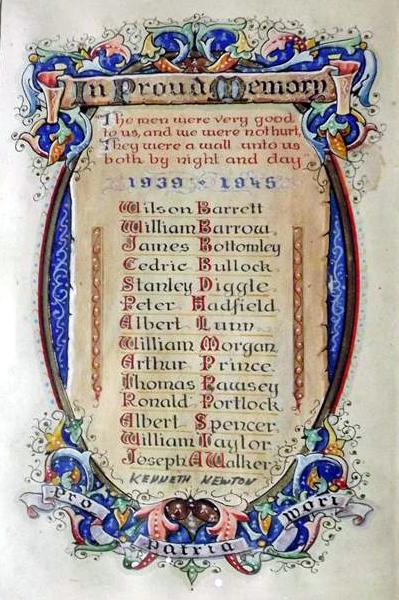 In Proud Memory
The men were very good
to us, and we were not hurt,
They were a wall unto us
both by night and day
1939 - 1945
Wilson Barrett
William Barrow
James Bottomley
Cedric Bullock
Stanley Diggle
Peter Hadfield
Albert Lunn
William Morgan
Arthur Prince
Thomas Pawsey
Ronald Portlock
Albert Spencer
William Taylor
Joseph A Walker
KENNETH NEWTON
pro patria mori